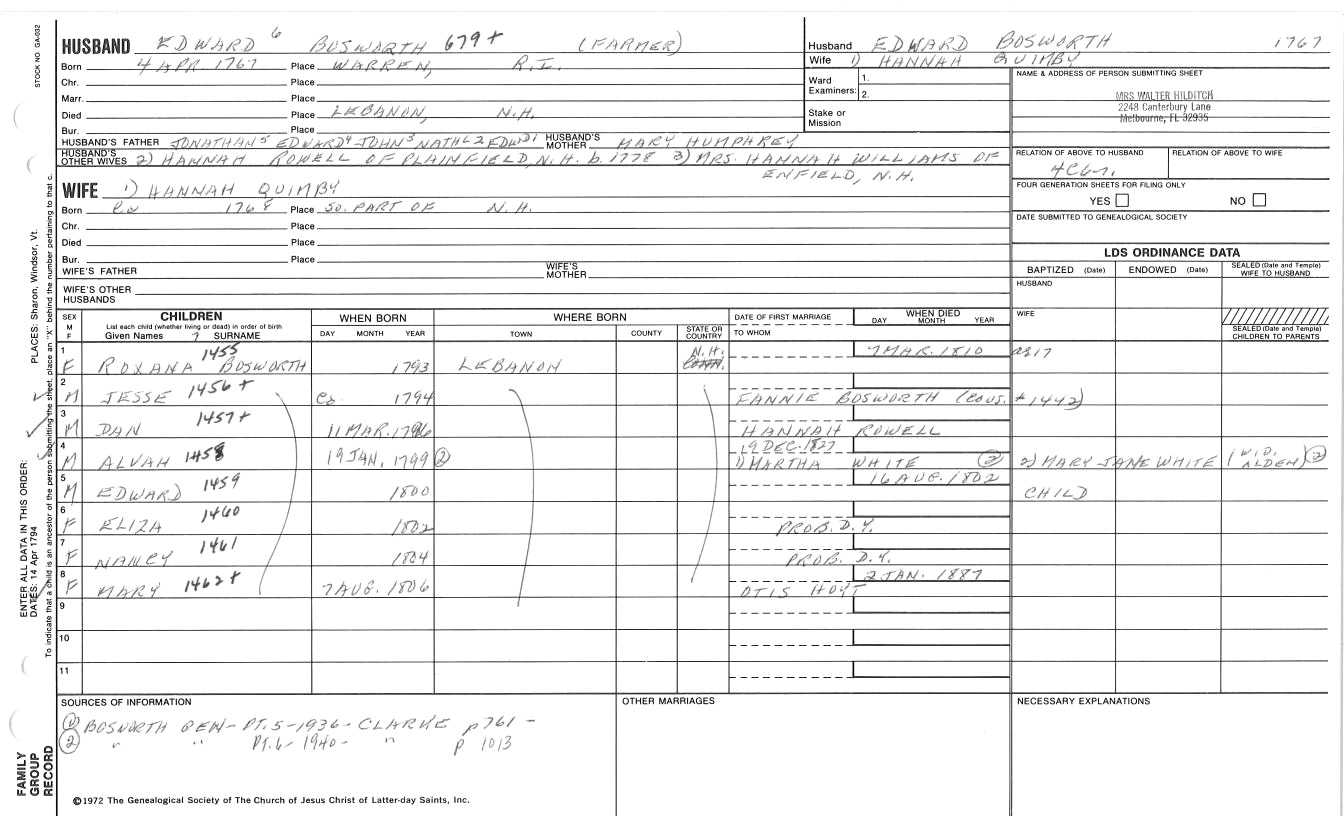 STOCK NO GA-032
HUSBAND EDWARD 6 BOSWORTH 679+ (FARMER)
Born 4 APR 1767 Place WARREN, R.I.
Chr. Place
Marr. Place
Died Place LEBANON, N.H.
Bur. Place
HUSBAND'S FATHER JONATHAN5 EDWARD4 JOHN3 NATHL2 EDWD1 HUSBAND'S MOTHER MARY HUMPHREY
HUSBAND'S OTHER WIVES 2) HANNAH ROWELL OF PLAINFIELD, N.H. b. 1778 3) MRS. HANNAH WILLIAMS OF
ENFIELD, N.H.
WIFE 1) HANNAH QUIMBY
Born Ca 1768 Place SO. PART OF N.H.
Chr. Place
Died Place
Bur. Place
WIFE'S FATHER WIFE'S MOTHER
WIFE'S OTHER HUSBANDS
Husband EDWARD BOSWORTH 1767
Wife 1) HANNAH QUIMBY
Ward Examiners: 1.
2.
Stake or Mission
NAME & ADDRESS OF PERSON SUBMITTING SHEET
MRS WALTER HILDITCH
2248 Canterbury Lane
Melbourne, FL 32935
RELATION OF ABOVE TO HUSBAND RELATION OF ABOVE TO WIFE
4C6r.
FOUR GENERATION SHEETS FOR FILING ONLY
YES NO
DATE SUBMITTED TO GENEALOGICAL SOCIETY
LDS ORDINANCE DATA
BAPTIZED (Date) ENDOWED (Date) SEALED (Date and Temple) WIFE TO HUSBAND
HUSBAND
WIFE
SEALED (Date and Temple) CHILDREN TO PARENTS
SEX M F CHILDREN WHEN BORN WHERE BORN DATE OF FIRST MARRIAGE WHEN DIED
List each child (whether living or dead) in order of birth
Given Names 7 SURNAME DAY MONTH YEAR TOWN COUNTY STATE OR COUNTRY TO WHOM DAY MONTH YEAR
1 F ROXANA 1455 BOSWORTH 1793 LEBANON N.H. CONN. 7 MAR. 1810 ae 17
2 M JESSE 1456+ Ca 1794 FANNIE BOSWORTH (COUS. #1442)
3 M DAN 1457+ 11 MAR. 1796 HANNAH ROWELL
4 M ALVAH 1458 19 JAN. 1799 2 19 DEC. 1827 1) MARTHA WHITE 2 2) MARY JANE WHITE (WID. ALDEN) 2
5 M EDWARD 1459 1800 16 AUG. 1802 CHILD
6 F ELIZA 1460 1802 PROB. D.Y.
7 F NANCY 1461 1804 PROB. D.Y.
8 F MARY 1462+ 7 AUG. 1806 OTIS HOYT 2 JAN. 1887
9
10
11
SOURCES OF INFORMATION
1 BOSWORTH GEN - PT. 5 - 1936 - CLARKE p 761 -
2 " " PT. 6 - 1940 - " p 1013
OTHER MARRIAGES
NECESSARY EXPLANATIONS
©1972 The Genealogical Society of The Church of Jesus Christ of Latter-day Saints, Inc.
ENTER ALL DATA IN THIS ORDER:
DATES: 14 Apr 1794 PLACES: Sharon, Windsor, Vt.
To indicate that a child is an ancestor of the person submitting the sheet, place an "X" behind the number pertaining to that c.
FAMILY
GROUP
RECORD